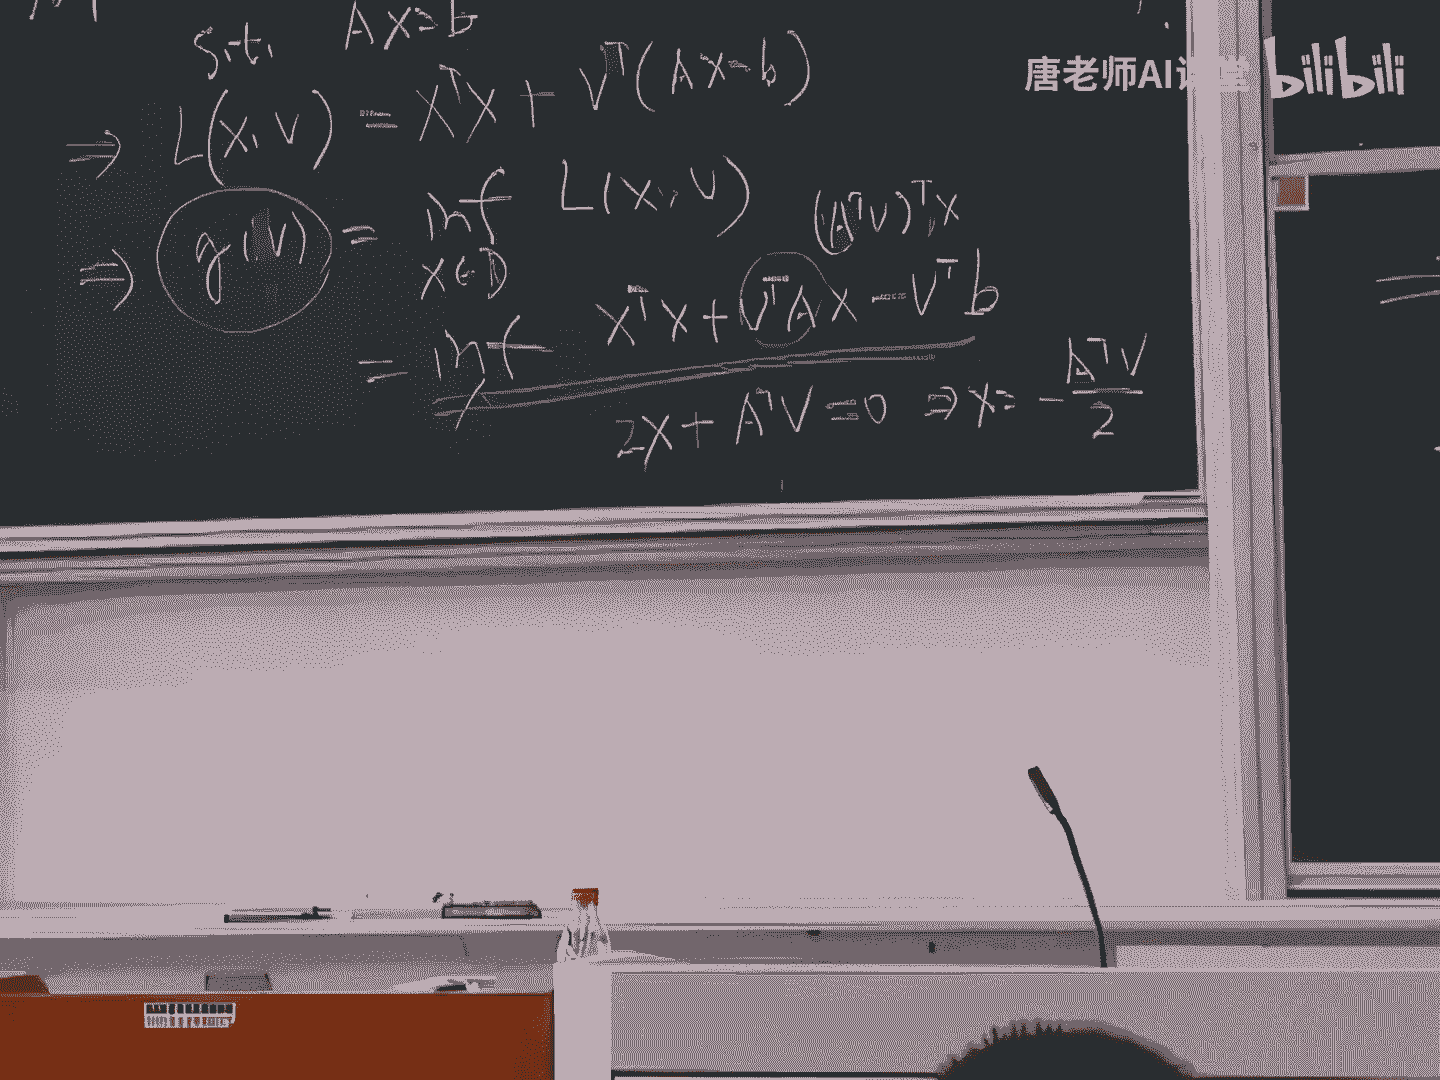 s.t. Ax=b
⇒ L(x,v) = xᵀx + vᵀ(Ax-b)
⇒ g(v) = inf L(x,v)
x∈D
(Aᵀv)ᵀx
= inf xᵀx + vᵀAx - vᵀb
x
2x + Aᵀv = 0 ⇒ x = - Aᵀv / 2
唐老师AI
bilibili